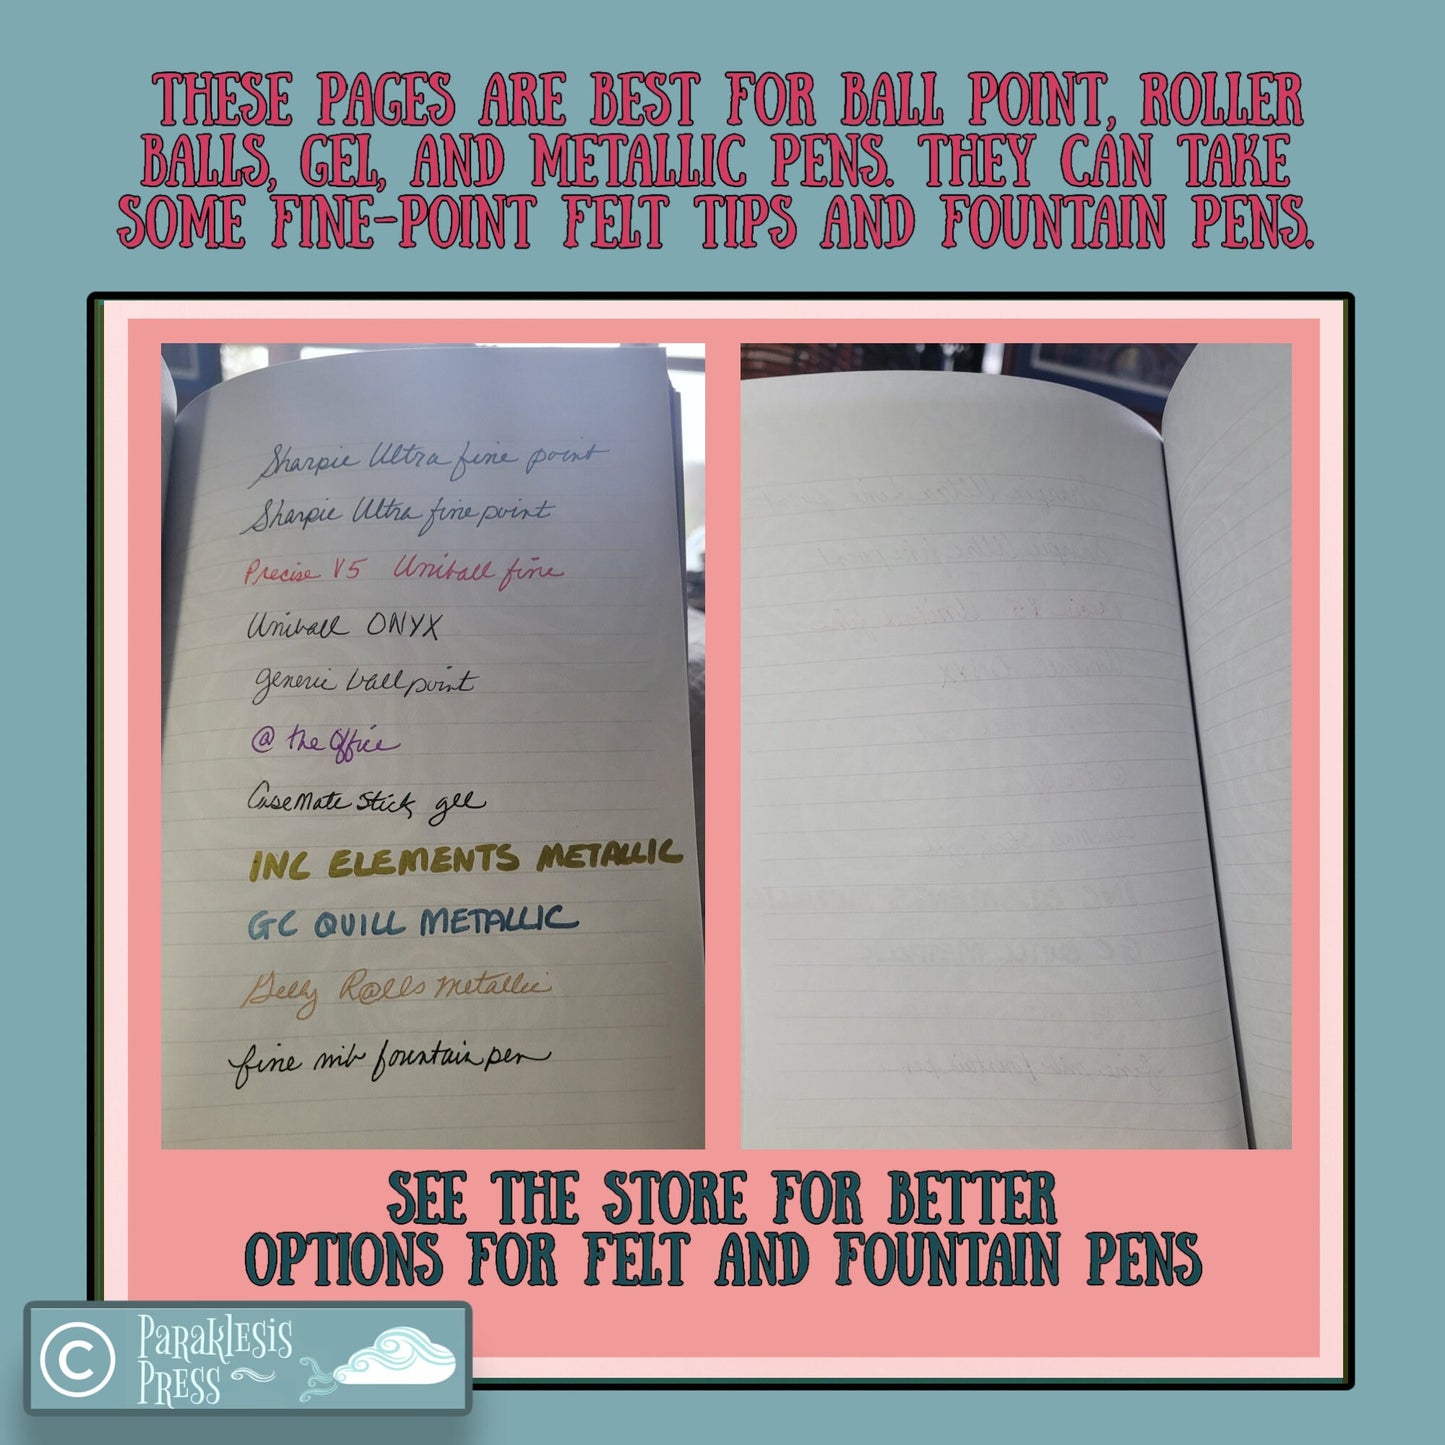 THESE PAGES ARE BEST FOR BALL POINT, ROLLER
BALLS, GEL, AND METALLIC PENS. THEY CAN TAKE
SOME FINE-POINT FELT TIPS AND FOUNTAIN PENS.
Sharpie Ultra fine point
Sharpie Ultra fine point
Precise V5 Uniball fine
Uniball ONYX
generic ball point
@ the Office
CaseMate Stick gel
INC ELEMENTS METALLIC
GC QUILL METALLIC
Gelly Rolls metallic
fine nib fountain pen
SEE THE STORE FOR BETTER
OPTIONS FOR FELT AND FOUNTAIN PENS
© PARAKLESIS
PRESS